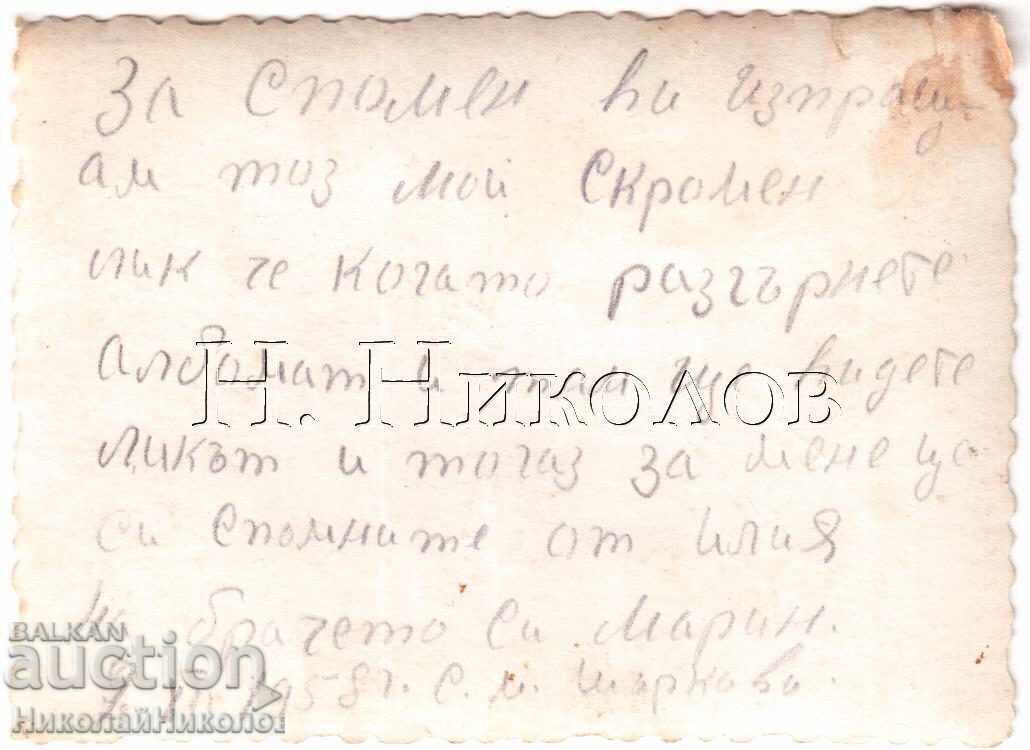 За Спомен ви изпращ-
ам тоз мой Скромен
лик че когато разгърнете
албомат и там ще видете
Ликът и тогаз за мене ще
си спомните от Илия
на братчето си Марин.
1958 г. С. М.
Н. Николов
BALKAN
auction
НиколайНиколов